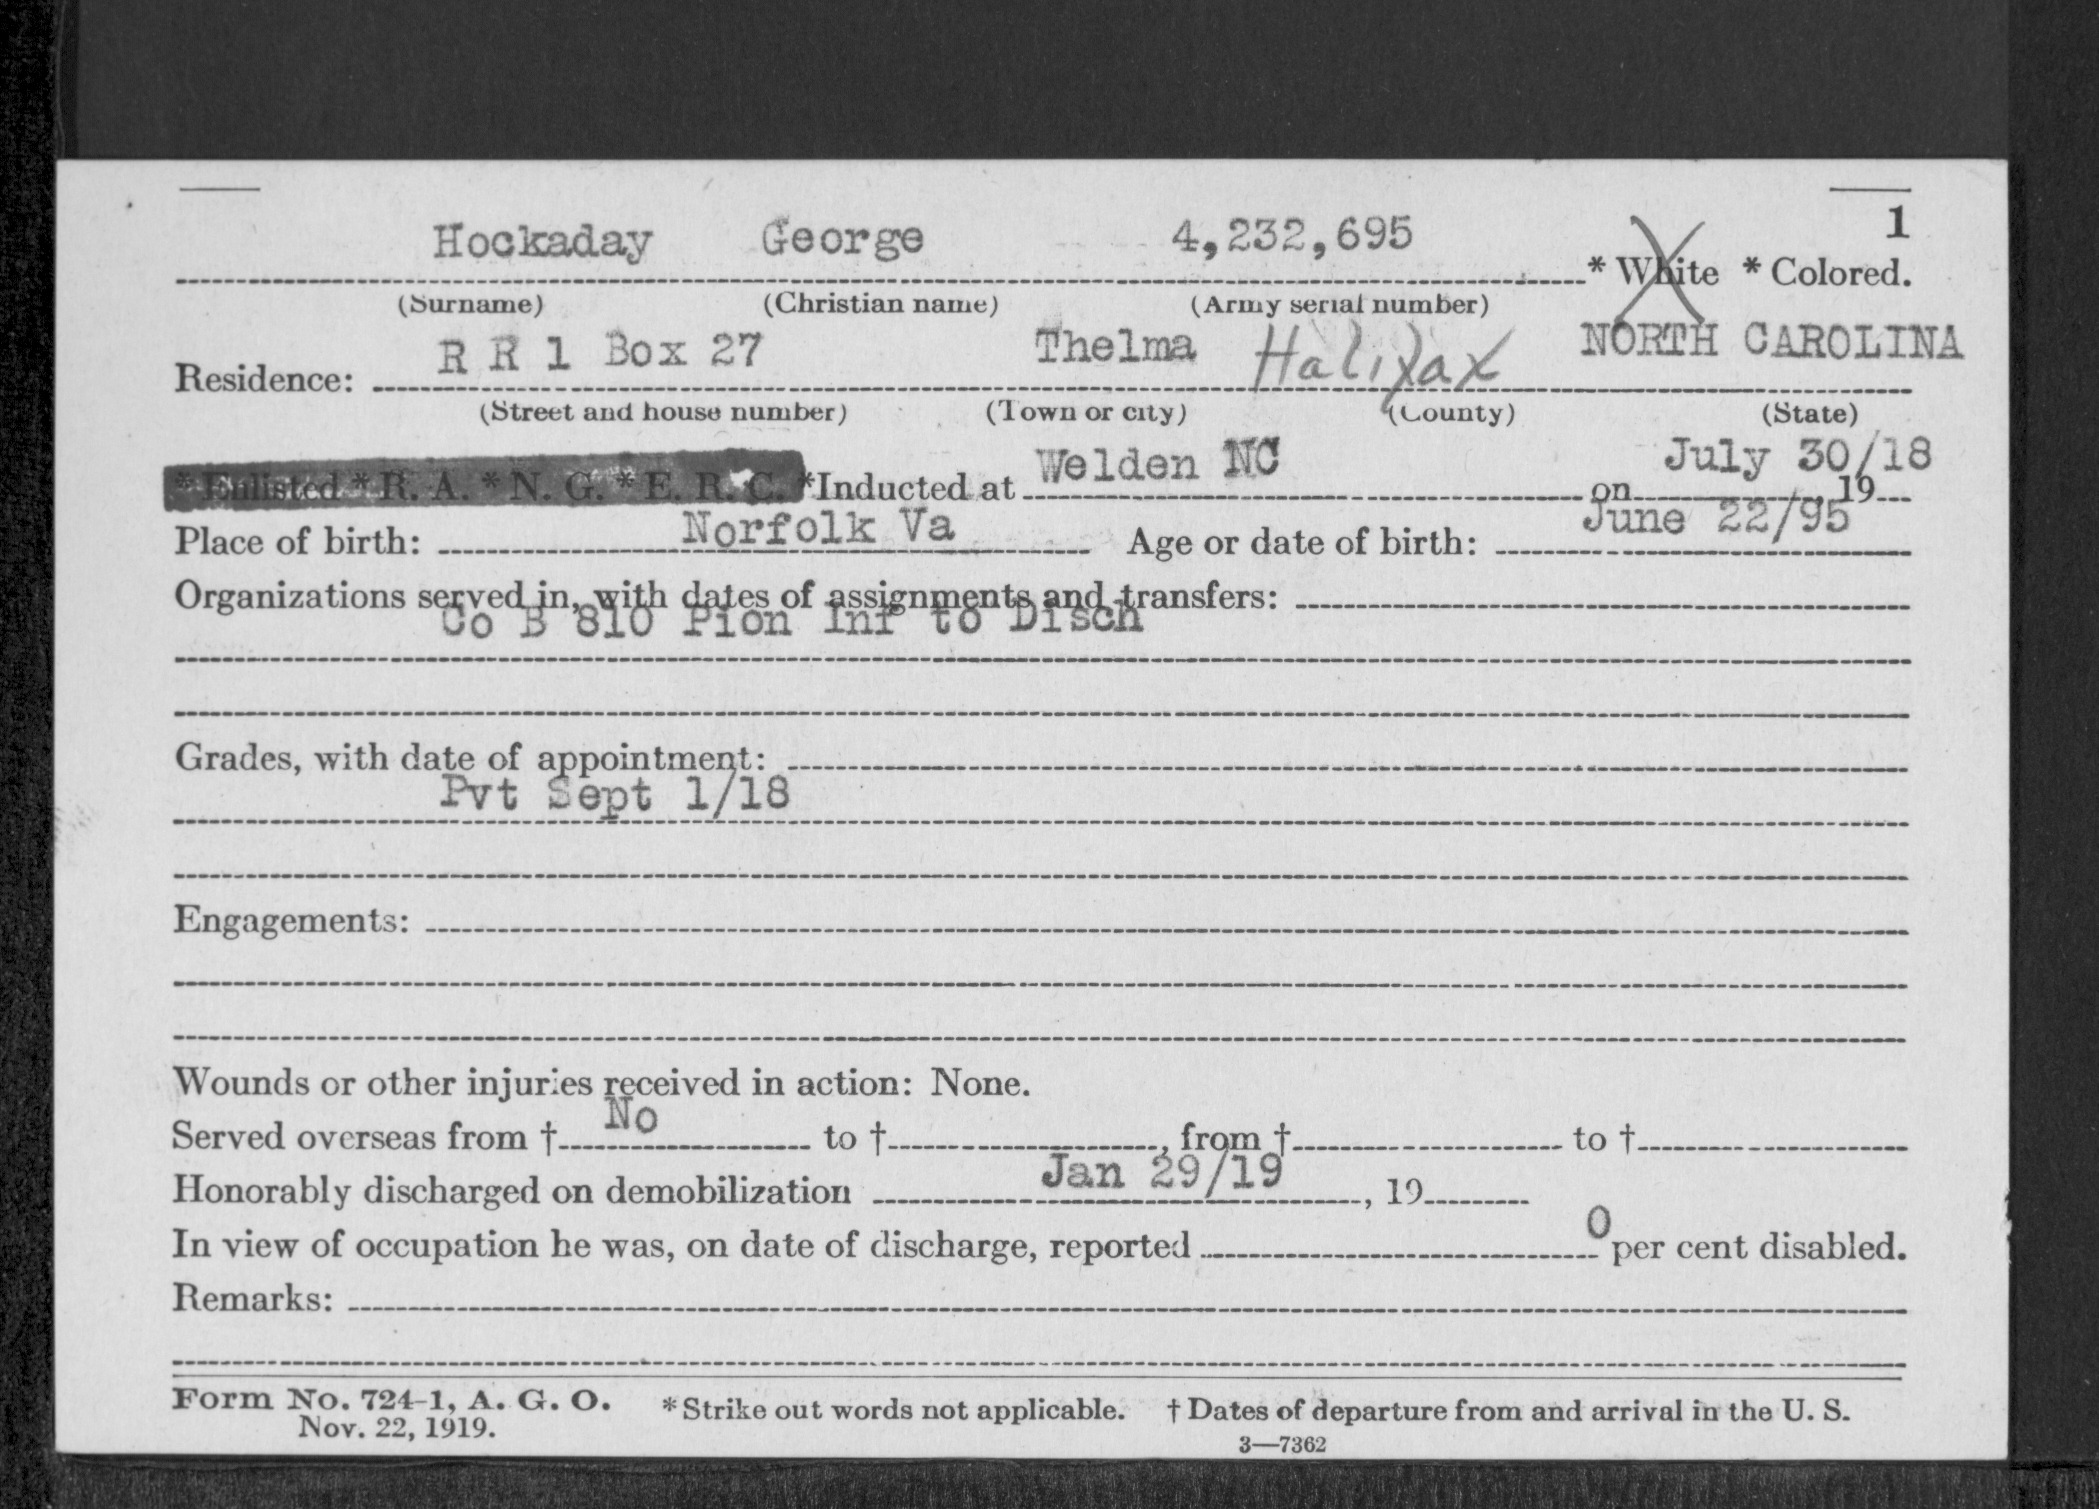 1
Hockaday George 4,232,695 * White * Colored.
(Surname) (Christian name) (Army serial number)
Residence: R R 1 Box 27 Thelma Halifax NORTH CAROLINA
(Street and house number) (Town or city) (County) (State)
* Enlisted * R. A. * N. G. * E. R. C. *Inducted at Welden NC on July 30/18, 19
Place of birth: Norfolk Va Age or date of birth: June 22/95
Organizations served in, with dates of assignments and transfers:
Co B 810 Pion Inf to Disch
Grades, with date of appointment:
Pvt Sept 1/18
Engagements:
Wounds or other injuries received in action: None.
Served overseas from † No to †, from † to †
Honorably discharged on demobilization Jan 29/19, 19
In view of occupation he was, on date of discharge, reported 0 per cent disabled.
Remarks:
Form No. 724-1, A. G. O. * Strike out words not applicable. † Dates of departure from and arrival in the U. S.
Nov. 22, 1919.
3—7362